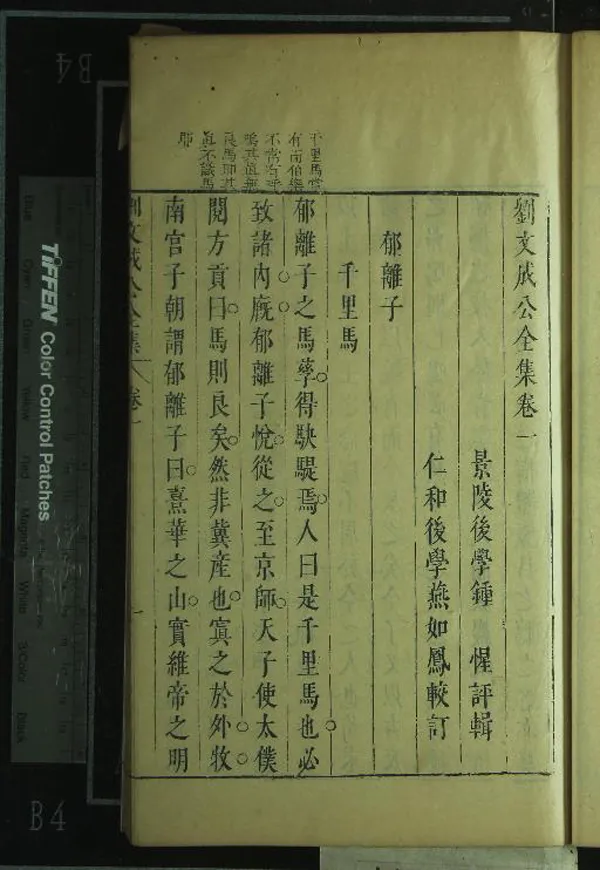 劉文成公全集卷一
景陵後學鍾 惺評輯
仁和後學燕如鳳較訂
郁離子
千里馬
郁離子之馬孳得駃騠焉人曰是千里馬也必
致諸內廐郁離子悅從之至京師天子使太僕
閱方貢曰馬則良矣然非冀產也寘之於外牧
南宮子朝謂郁離子曰熹華之山實維帝之明
千里馬常
有而伯樂
不常有
鳴其真無
良馬耶其
真不識馬
耶
劉文成公全集 卷一
一
TIFFEN Color Control Patches
B4
B4